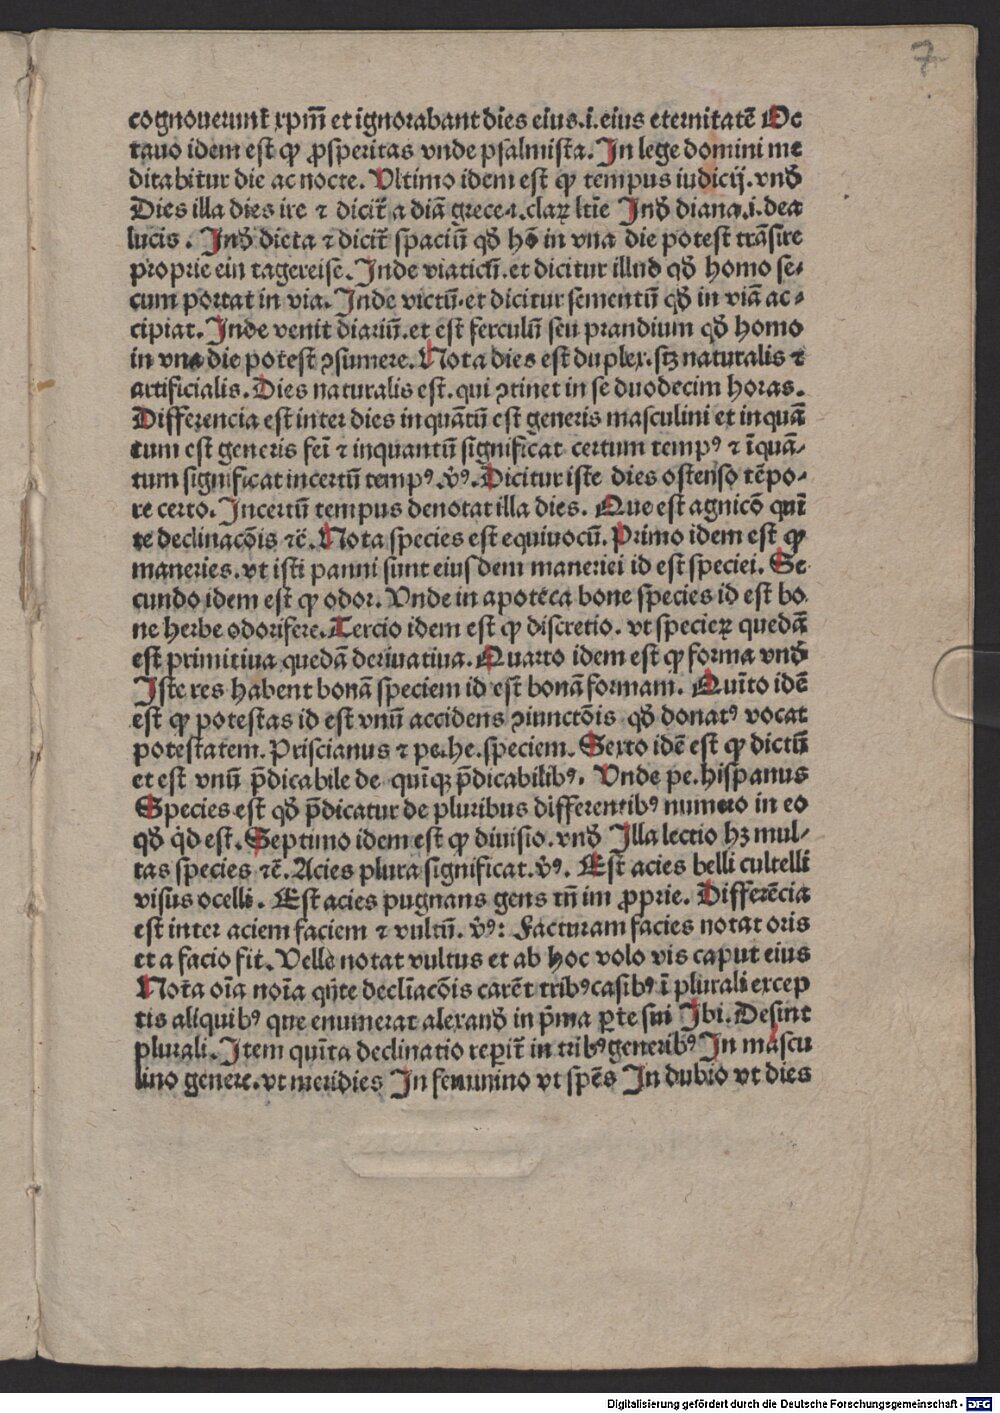 7
cognouerunt̄ xpm̄ et ignorabant dies eius.i.eius eternitatē Oc
tauo idem est ꝙ ꝓsperitas vnde psalmista. In lege domini me
ditabitur die ac nocte. Vltimo idem est ꝙ tempus iudicij. vnd̄
Dies illa dies ire ⁊ dicit̄ a diā grece.i.claꝝ ltīe Ind̄ diana.i.dea
lucis. Ind̄ dieta ⁊ dicit̄ spaciū qd̄ hō in vna die potest trāsire
proprie ein tagereise. Inde viaticū.et dicitur illud qd̄ homo se⸗
cum portat in via. Inde victū.et dicitur sementū qd̄ in viā ac⸗
cipiat. Inde venit diariū.et est ferculū seu prandium qd̄ homo
in vna die potest ꝯsumere. Nota dies est duplex.sꝫ naturalis ⁊
artificialis. Dies naturalis est. qui ꝯtinet in se duodecim horas.
Differencia est inter dies inquātū est generis masculini et inquā
tum est generis fei̅ ⁊ inquantū significat certum tempꝰ ⁊ īquā⸗
tum significat incertū tempꝰ.v̄ꝰ. Dicitur iste dies ostenso tēpo⸗
re certo. Incertū tempus denotat illa dies. Que est agnicō quī
te declinacōis ⁊c̄. Nota species est equiuocū. Primo idem est ꝙ
maneries. vt isti panni sunt eiusdem maneriei id est speciei. Se
cundo idem est ꝙ odor. Vnde in apoteca bone species id est bo
ne herbe odorifere. Tercio idem est ꝙ discretio. vt specieꝝ quedā
est primitiua quedā deriuatiua. Quarto idem est ꝙ forma vnd̄
Iste res habent bonā speciem id est bonā formam. Quīto idē
est ꝙ potestas id est vnū accidens ꝯiunctōis qd̄ donatꝰ vocat
potestatem. Priscianus ⁊ pe.he.speciem. Sexto idē est ꝙ dictū
et est vnū p̄dicabile de quīqꝫ p̄dicabilibꝰ. Vnde pe.hispanus
Species est qd̄ p̄dicatur de pluribus differentibꝰ numero in eo
qd̄ q̇d est. Septimo idem est ꝙ diuisio. vnd̄ Illa lectio hꝫ mul⸗
tas species ⁊c̄. Acies plura significat.v̄ꝰ. Est acies belli cultelli
visus ocelli. Est acies pugnans gens tn̄ im ꝓprie. Differēcia
est inter aciem faciem ⁊ vultū. v̄ꝰ: Facturam facies notat oris
et a facio fit. Velle notat vultus et ab hoc volo vis caput eius
Not̄a oīa noīa qn̄te declīacōis carēt tribꝰcasibꝰ ī plurali excep
tis aliquibꝰ que enumerat alexand̄ in p̄ma ꝑte sui Ibi. Desint
plurali. Item quīta declinatio reperit̄ in tribꝰgeneribꝰ In mascu
lino genere.vt meridies In feminino vt spēs In dubio vt dies
Digitalisierung gefördert durch die Deutsche Forschungsgemeinschaft - DFG